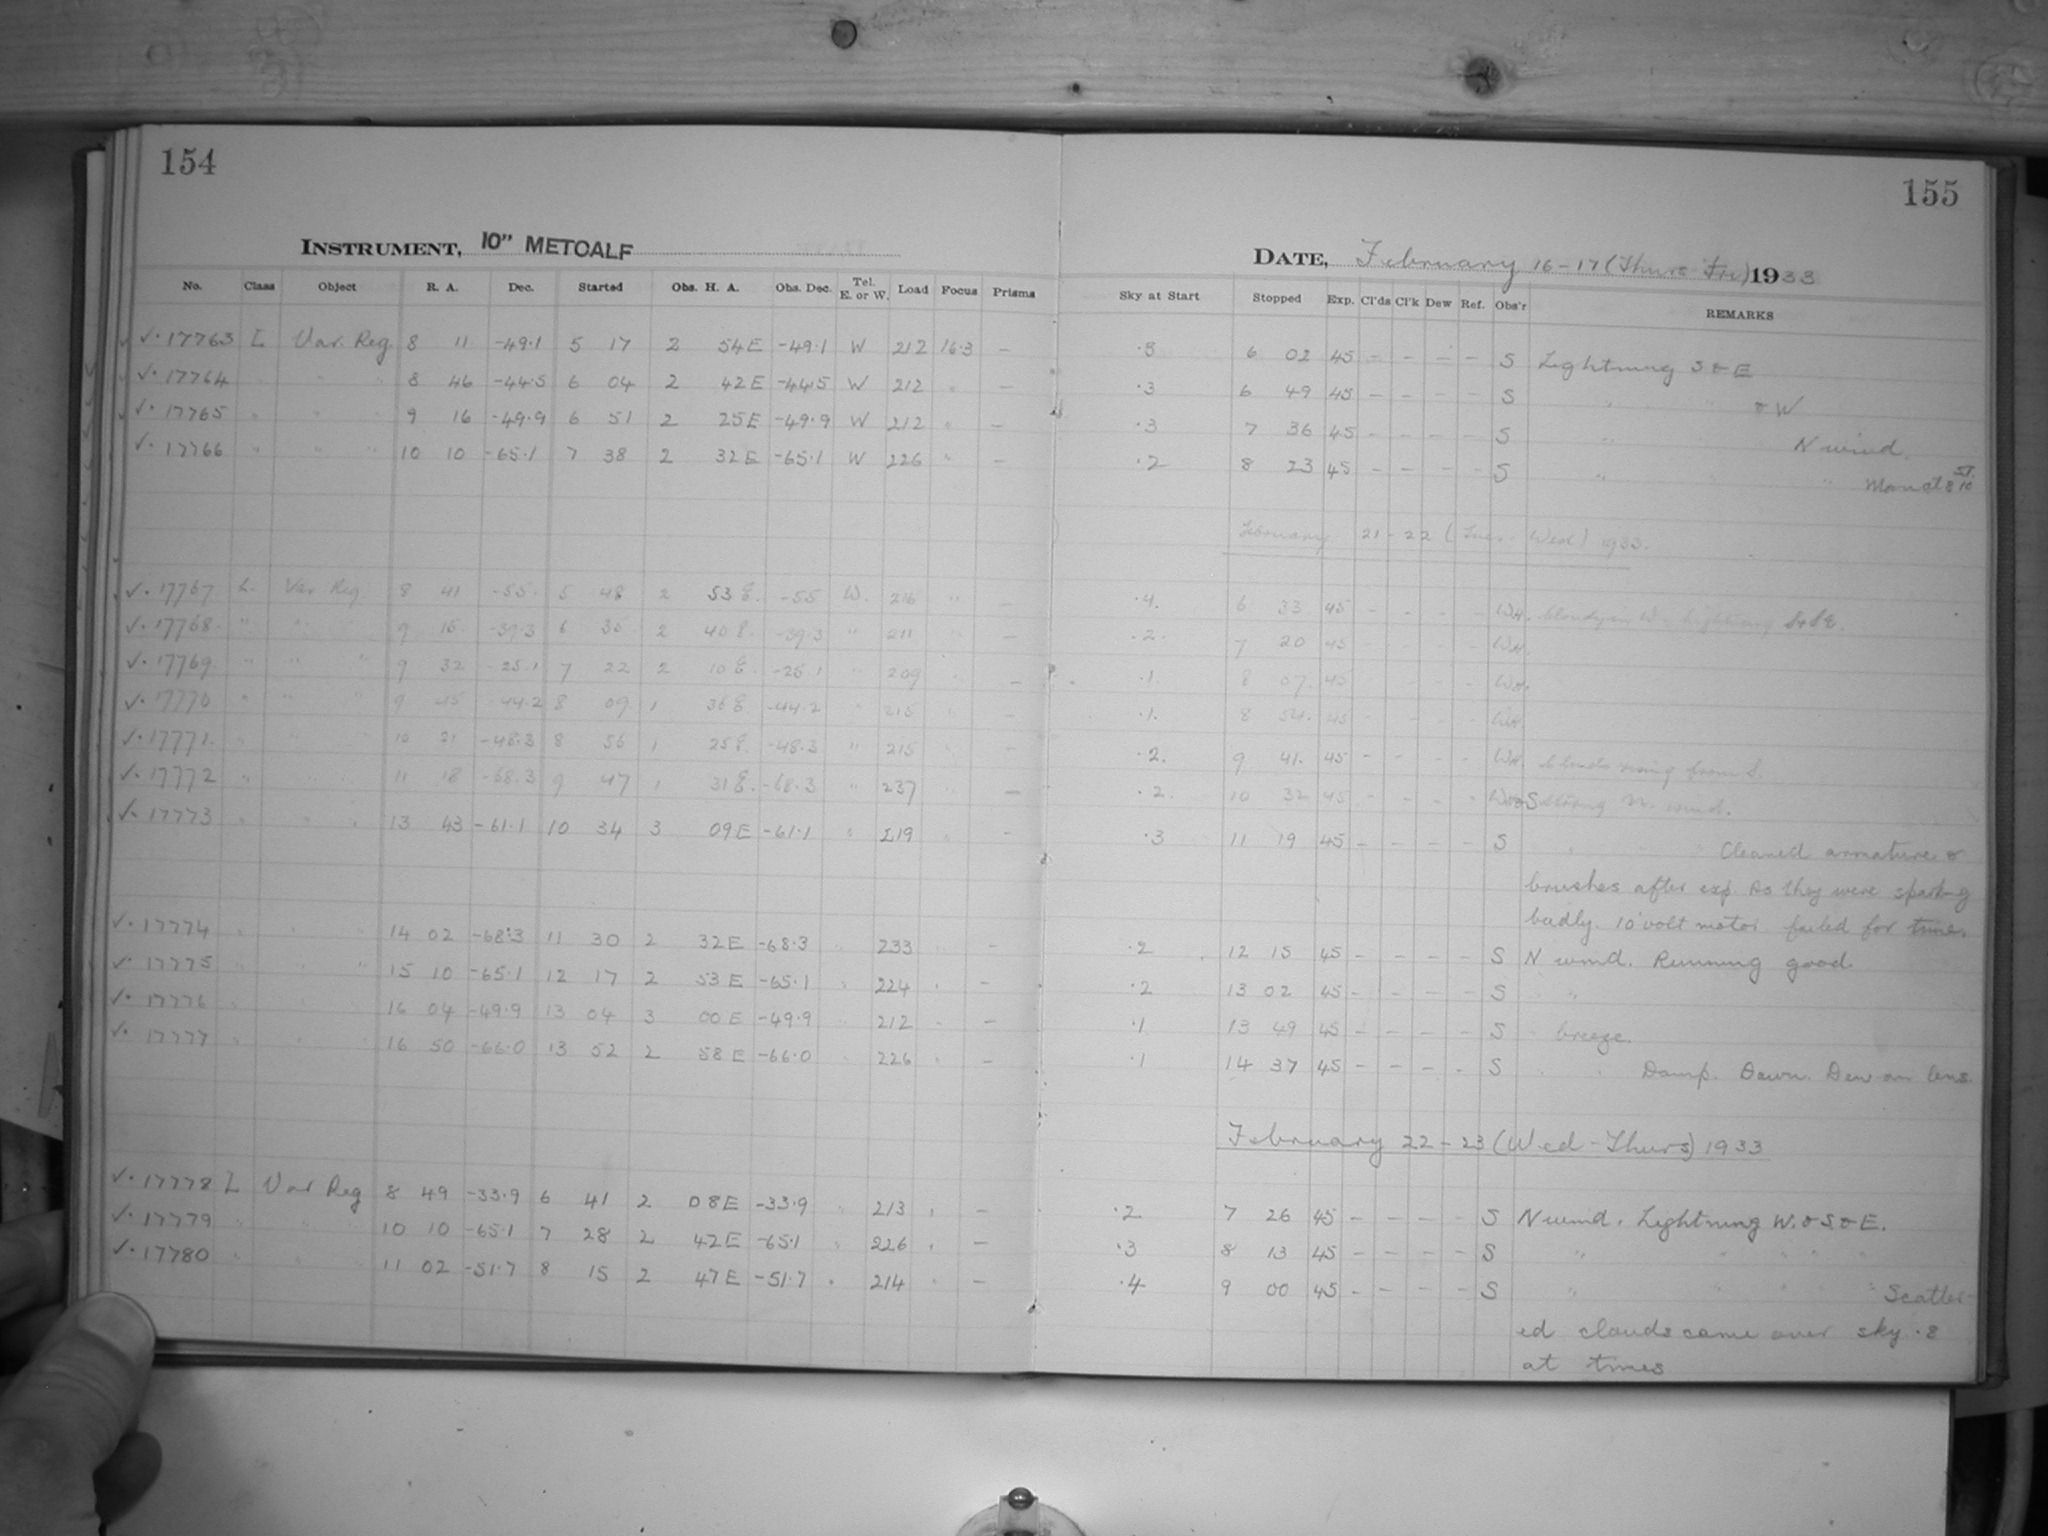 154
155
INSTRUMENT, 10" METCALF
DATE, February 16-17 (Thurs Fri) 1933
No. Class Object R. A. Dec. Started Obs. H. A. Obs. Dec. Tel. E. or W. Load Focus Prisms Sky at Start Stopped Exp. Cl'ds Cl'k Dew Ref. Obs'r REMARKS
✓. 17763 L Var. Reg. 8 11 -49.1 5 17 2 54E -49.1 W 212 16.3 — 6 02 45 - - - - S Lightning S & E
✓. 17764 " " 8 46 -44.5 6 04 2 42E -44.5 W 212 " — .3 6 49 45 - - - - S " " & W
✓. 17765 " " " 9 16 -49.9 6 51 2 25E -49.9 W 212 " — .3 7 36 45 - - - - S " " N wind.
✓. 17766 " " " 10 10 -65.1 7 38 2 32E -65.1 W 226 " — .2 8 23 45 - - - - S " " "
February 21-22 (Tues - Wed) 1933.
✓. 17767 L. Var Reg 8 41 -55. 5 48 2 53 E. -55 W. 216 " — .4. 6 33 45 - - - - WH. Cloudy in W. Lightning S & SE.
✓. 17768. " " 9 -39.3 6 2 40 E. -39.3 " 211 " — .2. 7 20 45 - - - - WH.
✓. 17769. " " " 9 32 -25.1 7 22 2 10 E. -25.1 " 209 " — .1. 8 07. 45 - - - - WH.
✓. 17770 " " " 9 -44.2 8 09 1 36 E. -44.2 " 215 " — .1. 8 54. 45 - - - - WH
✓. 17771. " " " 10 21 -48.3 8 56 1 25 E. -48.3 " 215 " - .2. 9 41. 45 - - - - WH. Clouds rising from S.
✓. 17772 " " " 11 18 -68.3 9 47 1 31 E. -68.3 " 237 " — .2. 10 32 45 - - - - S Strong N. wind.
✓. 17773 " " " 13 43 -61.1 10 34 3 09E -61.1 " 219 " - .3 11 19 45 - - - - S " " " Cleaned armature &
brushes after exp. as they were sparking
badly. 10 volt motor failed for time.
✓. 17774 " " " 14 02 -68.3 11 30 2 32E -68.3 " 233 " - .2 12 15 45 - - - - S N wind. Running good.
✓. 17775 " " " 15 10 -65.1 12 17 2 53 E -65.1 " 224 " - .2 13 02 45 - - - - S " "
✓. 17776 " " " 16 04 -49.9 13 04 3 00 E -49.9 " 212 " - .1 13 49 45 - - - - S " breeze.
✓. 17777 " " " 16 50 -66.0 13 52 2 58 E -66.0 " 226 " - .1 14 37 45 - - - - S " " Damp. Dawn. Dew on lens.
February 22-23 (Wed-Thurs) 1933
✓. 17778 L Var Reg 8 49 -33.9 6 41 2 08E -33.9 " 213 " - .2 7 26 45 - - - - S N wind. Lightning W. & S & E.
✓. 17779 " " " 10 10 -65.1 7 28 2 42E -65.1 " 226 " - .3 8 13 45 - - - - S " " " " "
✓. 17780 " " " 11 02 -51.7 8 15 2 47E -51.7 " 214 " - .4 9 00 45 - - - - S " " " " " Scatter-
ed clouds came over sky .8
at times